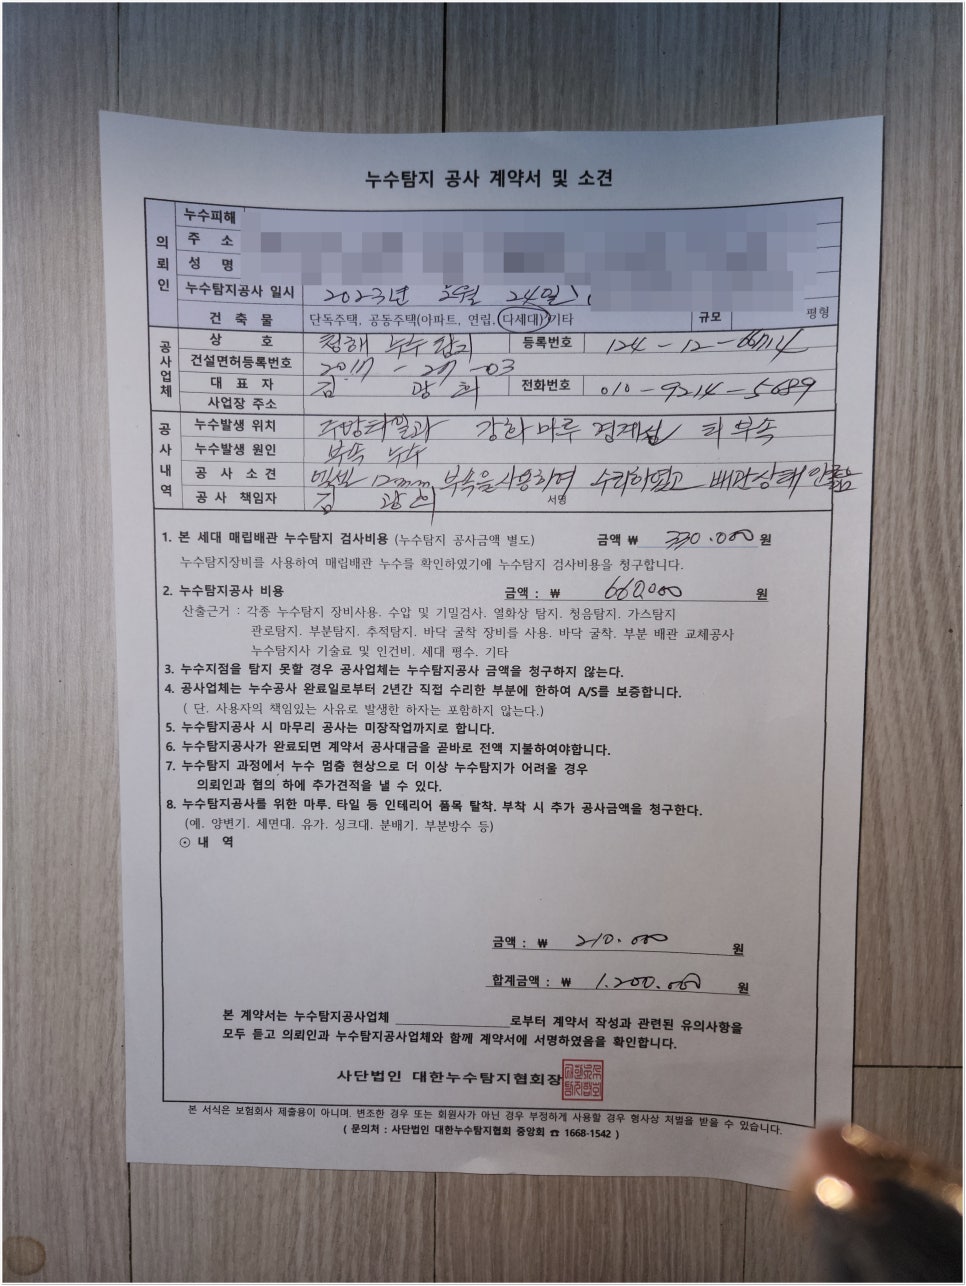 누수탐지 공사 계약서 및 소견
의뢰인
누수피해
주 소
성 명
누수탐지공사 일시 2023년 5월 24일
건 축 물 단독주택, 공동주택(아파트, 연립, 다세대) 기타 규모 평형
공사업체
상 호 청해 누수탐지 등록번호 124-12-66714
건설면허등록번호 2017-27-03
대 표 자 김 광 희 전화번호 010-9214-5689
사업장 주소
공사내역
누수발생 위치 주방타일과 강화마루 경계선 부속
누수발생 원인 부속 누수
공 사 소 견 엑셀 12mm 부속을 사용하여 수리하였고 배관상태 안좋음
공 사 책임자 김 광희 서명
1. 본 세대 매립배관 누수탐지 검사비용 (누수탐지 공사금액 별도) 금액 ₩ 330.000 원
누수탐지장비를 사용하여 매립배관 누수를 확인하였기에 누수탐지 검사비용을 청구합니다.
2. 누수탐지공사 비용 금액 : ₩ 660000 원
산출근거 : 각종 누수탐지 장비사용. 수압 및 기밀검사. 열화상 탐지. 청음탐지. 가스탐지
관로탐지. 부분탐지. 추적탐지. 바닥 굴착 장비를 사용. 바닥 굴착. 부분 배관 교체공사
누수탐지사 기술료 및 인건비. 세대 평수. 기타
3. 누수지점을 탐지 못할 경우 공사업체는 누수탐지공사 금액을 청구하지 않는다.
4. 공사업체는 누수공사 완료일로부터 2년간 직접 수리한 부분에 한하여 A/S를 보증합니다.
( 단. 사용자의 책임있는 사유로 발생한 하자는 포함하지 않는다.)
5. 누수탐지공사 시 마무리 공사는 미장작업까지로 합니다.
6. 누수탐지공사가 완료되면 계약서 공사대금을 곧바로 전액 지불하여야합니다.
7. 누수탐지 과정에서 누수 멈춤 현상으로 더 이상 누수탐지가 어려울 경우
의뢰인과 협의 하에 추가견적을 낼 수 있다.
8. 누수탐지공사를 위한 마루. 타일 등 인테리어 품목 탈착. 부착 시 추가 공사금액을 청구한다.
(예. 양변기. 세면대. 유가. 싱크대. 분배기. 부분방수 등)
⊙ 내 역
금액 : ₩ 210.000 원
합계금액 : ₩ 1.200.000 원
본 계약서는 누수탐지공사업체 로부터 계약서 작성과 관련된 유의사항을
모두 듣고 의뢰인과 누수탐지공사업체와 함께 계약서에 서명하였음을 확인합니다.
사단법인 대한누수탐지협회장
본 서식은 보험회사 제출용이 아니며. 변조한 경우 또는 회원사가 아닌 경우 부정하게 사용할 경우 형사상 처벌을 받을 수 있습니다.
( 문의처 : 사단법인 대한누수탐지협회 중앙회 ☎ 1668-1542 )